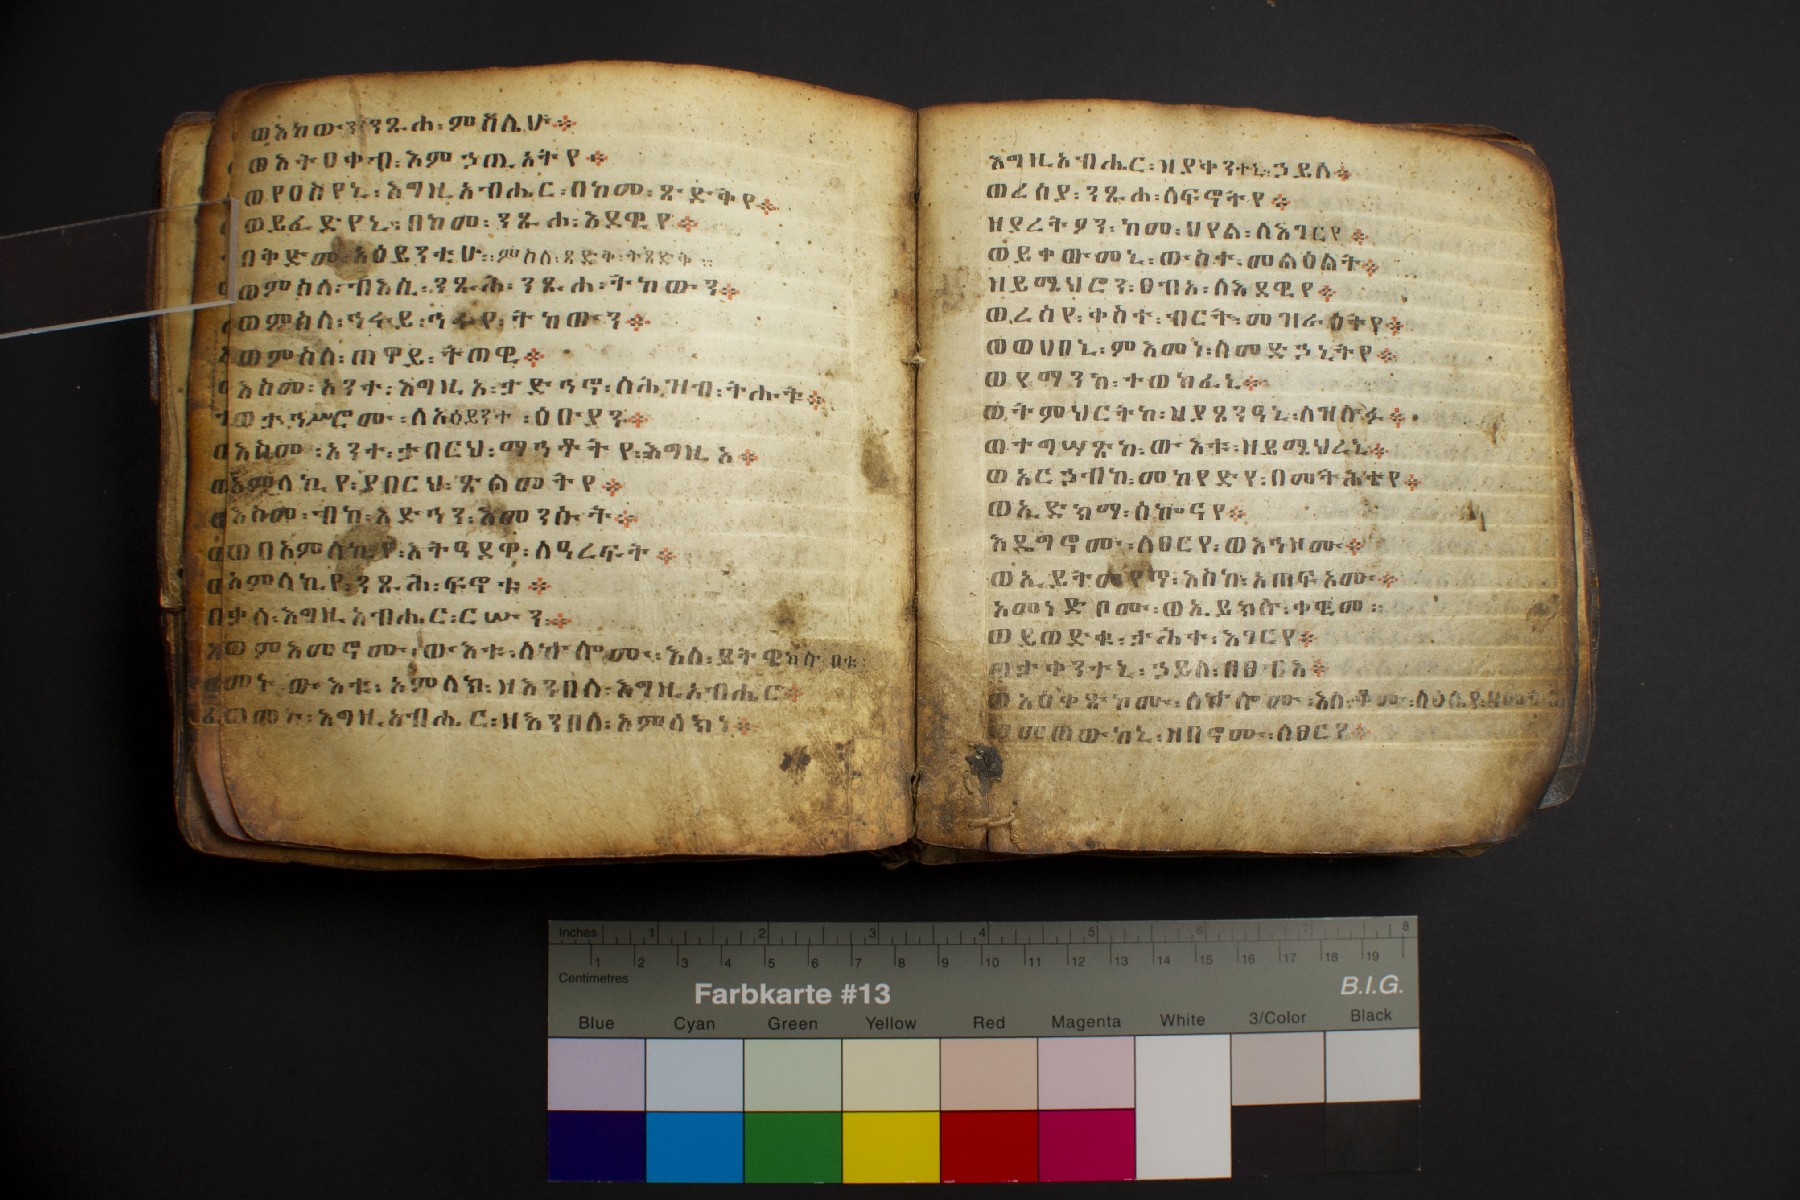 ወእከውን ንጹሐ ፡ ምስሌሁ ።
ወእትዐቀብ ፡ እም ኃጢአትየ ።
ወየዐስየኒ ፡ እግዚአብሔር ፡ በከመ ፡ ጽድቅየ ።
ወይፈድየኒ ፡ በከመ ፡ ንጹሐ ፡ እደዊየ ።
በቅድመ ፡ አዕይንቲሁ ። ምስለ ፡ ጻድቅ ፡ ትጸድቅ ።
ወምስለ ፡ ብእሲ ፡ ንጹሕ ፡ ንጹሐ ፡ ትከውን ።
ወምስለ ፡ ኅሩይ ፡ ኅሩየ ፡ ትከውን ።
ወምስለ ፡ ጠዋይ ፡ ትጠዊ ።
እስመ ፡ አንተ ፡ እግዚአ ፡ ታድኅኖ ፡ ለሕዝብ ፡ ትሑት ።
ወታኅሥሮሙ ፡ ለአዕይንተ ፡ ዕቡያን ።
እስመ ፡ አንተ ፡ ታበርህ ፡ ማኅቶትየ ፡ እግዚአ ።
አምላኪየ ፡ ያበርህ ፡ ጽልመትየ ።
እስመ ፡ ብከ ፡ እድኅን ፡ እመንሱት ።
ወበአምላኪየ ፡ እትዓደዋ ፡ ለዓረፍት ።
አምላኪየ ፡ ንጹሕ ፡ ፍኖቱ ።
ቃለ ፡ እግዚአብሔር ፡ ርሡን ።
ወምእመኖሙ ፡ ውእቱ ፡ ለኵሎሙ ፡ እለ ፡ ይትዌከሉ ቦቱ
መኑ ውእቱ ፡ አምላክ ፡ ዘእንበለ ፡ እግዚአብሔር ።
ወመኑ ፡ እግዚአብሔር ፡ ዘእንበለ ፡ አምላክነ ።
እግዚአብሔር ፡ ዘያቀንተኒ ፡ ኃይለ ።
ወረሰያ ፡ ንጹሐ ፡ ለፍኖትየ ።
ዘያረትዖን ፡ ከመ ፡ ህየል ፡ ለእገርየ ።
ወይቀውመኒ ፡ ውስተ ፡ መልዕልት ።
ዘይሜህሮን ፡ ፀብአ ፡ ለእደዊየ ።
ወረሰየ ፡ ቀስተ ፡ ብርት ፡ መዝራዕትየ ።
ወወሀበኒ ፡ ምእመነ ፡ ለመድኃኒትየ ።
ወየማንከ ፡ ተወክፈኒ ።
ወትምህርትከ ፡ ዘያጸንዓኒ ፡ ለዝሉፉ ።
ወተግሣጽከ ፡ ውእቱ ፡ ዘይሜህረኒ ።
ወአርኃብከ ፡ መከየድየ ፡ በመትሕቴየ ።
ወኢድክማ ፡ ሰኰናየ ።
እዴግኖሙ ፡ ለፀርየ ፡ ወእኅዞሙ ።
ወኢይትመየጥ ፡ እስከ ፡ አጠፍአሙ ።
አመነድቦሙ ፡ ወኢይክሉ ፡ ቀዊመ ።
ወይወድቁ ፡ ታሕተ ፡ እገርየ ።
ወታቀንተኒ ፡ ኃይለ ፡ በፀብእ ።
ወአዕቀጽኮሙ ፡ ለኵሎሙ ፡ እለ ፡ ቆሙ ፡ ላዕሌየ
ወመጠውከኒ ፡ ዘበኖሙ ፡ ለፀርየ ።
Inches
Centimetres
Farbkarte #13
B.I.G.
Blue Cyan Green Yellow Red Magenta White 3/Color Black